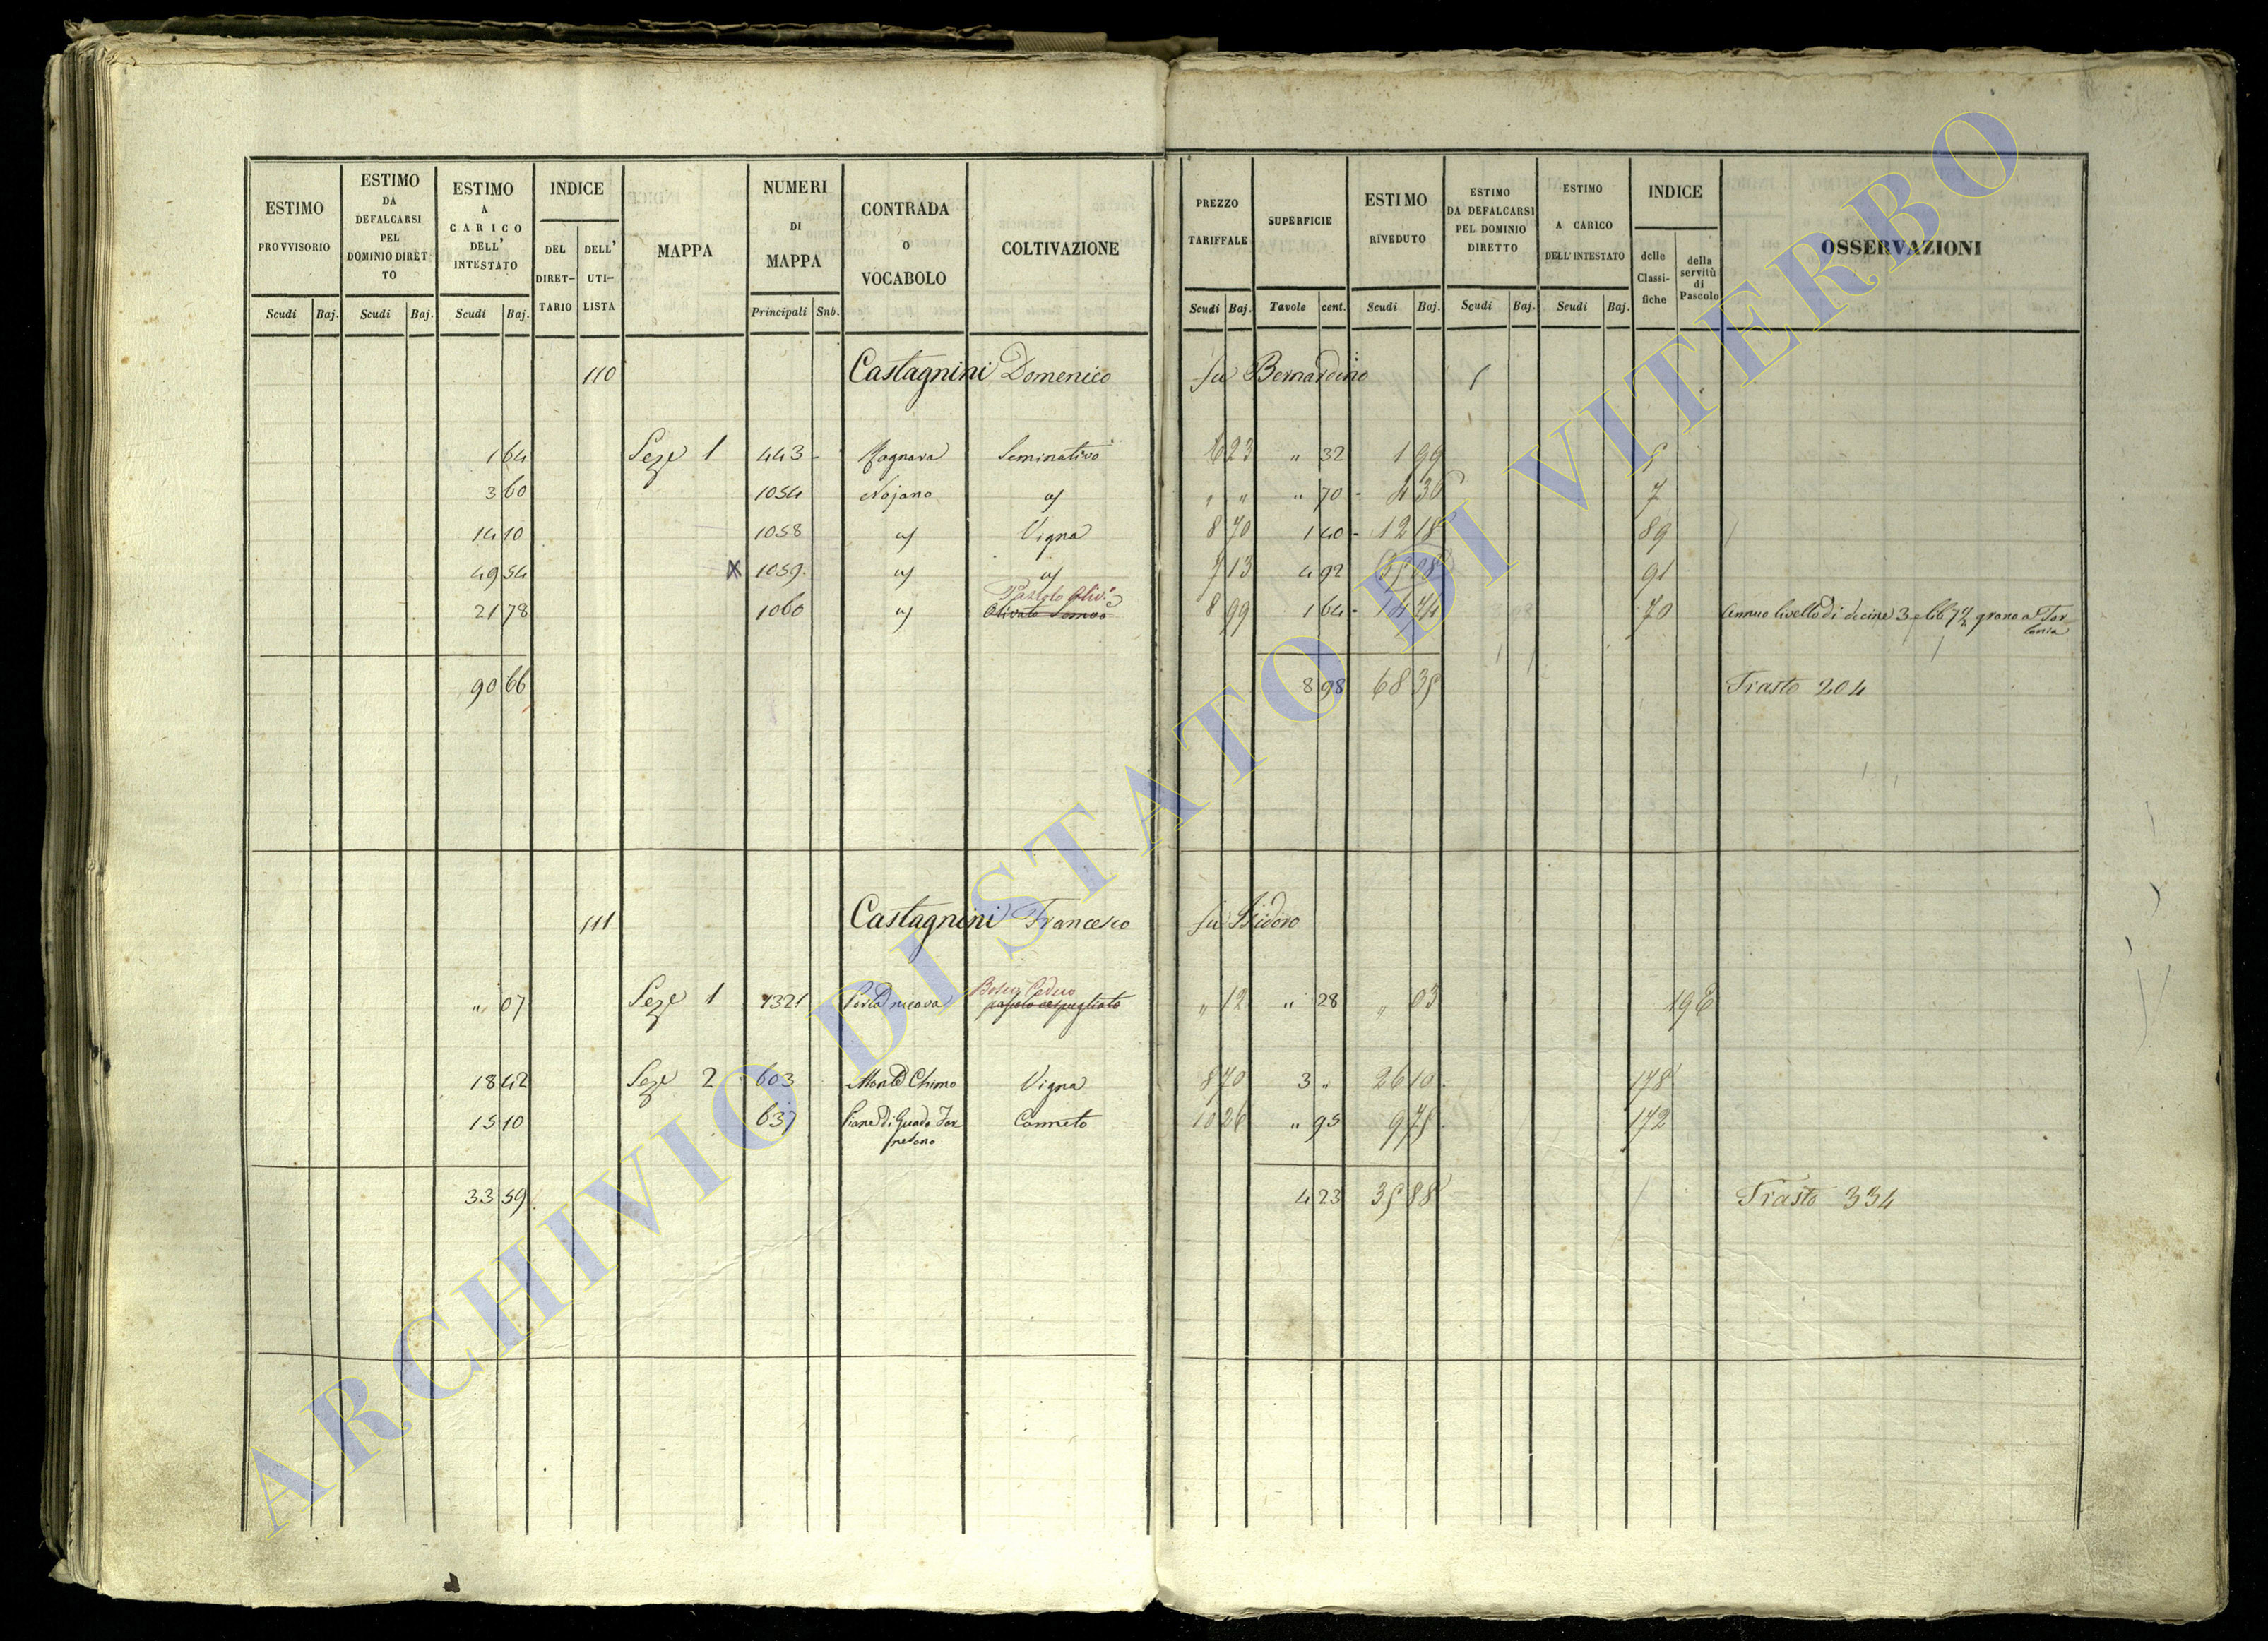 ESTIMO PROVVISORIO Scudi Baj.
ESTIMO DA DEFALCARSI PEL DOMINIO DIRETTO Scudi Baj.
ESTIMO A CARICO DELL' INTESTATO Scudi Baj.
INDICE DEL DIRET-TARIO DELL' UTI-LISTA
MAPPA
NUMERI DI MAPPA Principali Snb.
CONTRADA O VOCABOLO
COLTIVAZIONE
PREZZO TARIFFALE Scudi Baj.
SUPERFICIE Tavole cent.
ESTIMO RIVEDUTO Scudi Baj.
ESTIMO DA DEFALCARSI PEL DOMINIO DIRETTO Scudi Baj.
ESTIMO A CARICO DELL'INTESTATO Scudi Baj.
INDICE delle Classi-fiche della servitù di Pascolo
OSSERVAZIONI
110 Castagnini Domenico fu Bernardino
1 64 Seze 1 443 Seminativo 6 23 " 32 1 99
3 60 1054 Nojano a/ " " " 70 4 36 7
14 10 1058 a/ Vigna 8 70 1 40 12 18 89
49 54 X 1059 a/ a/ 7 13 4 92 35 08 91
21 78 1060 a/ Pascolo Oliv. Olivato 8 99 1 64 14 74 70 Annuo livello di decine 3 e lib 7½ grano a Tor
lonia
90 66 8 98 68 35 Trasto 204
111 Castagnini Francesco fu Isidoro
" 07 Seze 1 1321 Porta nuova Bosco Ceduo pascolo cespugliato " 12 " 28 " 03 198
18 42 Seze 2 603 Monte Chimo Vigna 8 70 3 " 26 10 178
15 10 637 Piane di Guado Canneto 10 26 " 95 9 75 172
33 59 4 23 35 88 Trasto 334
ARCHIVIO DI STATO DI VITERBO